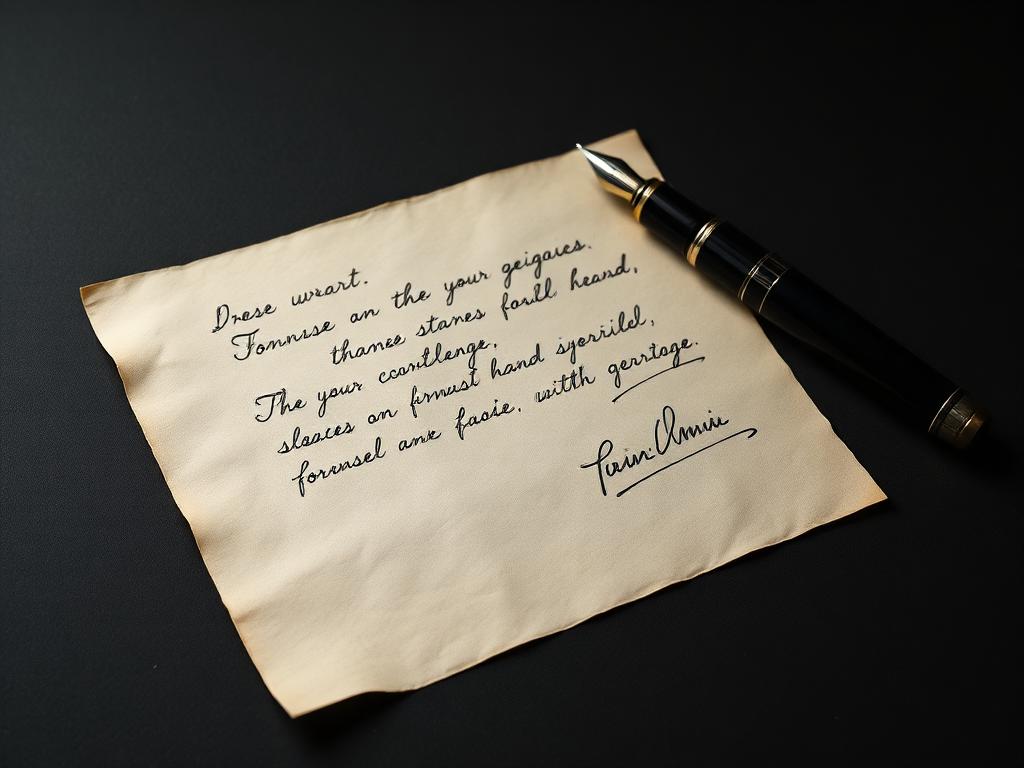 Drese wurart.
Fonnrse an the your geigares.
thanee stanes farill heand,
The your ccantlenge,
slaaces on frmust hand syerrild,
forrnsel anre facie. witth gerrtage.